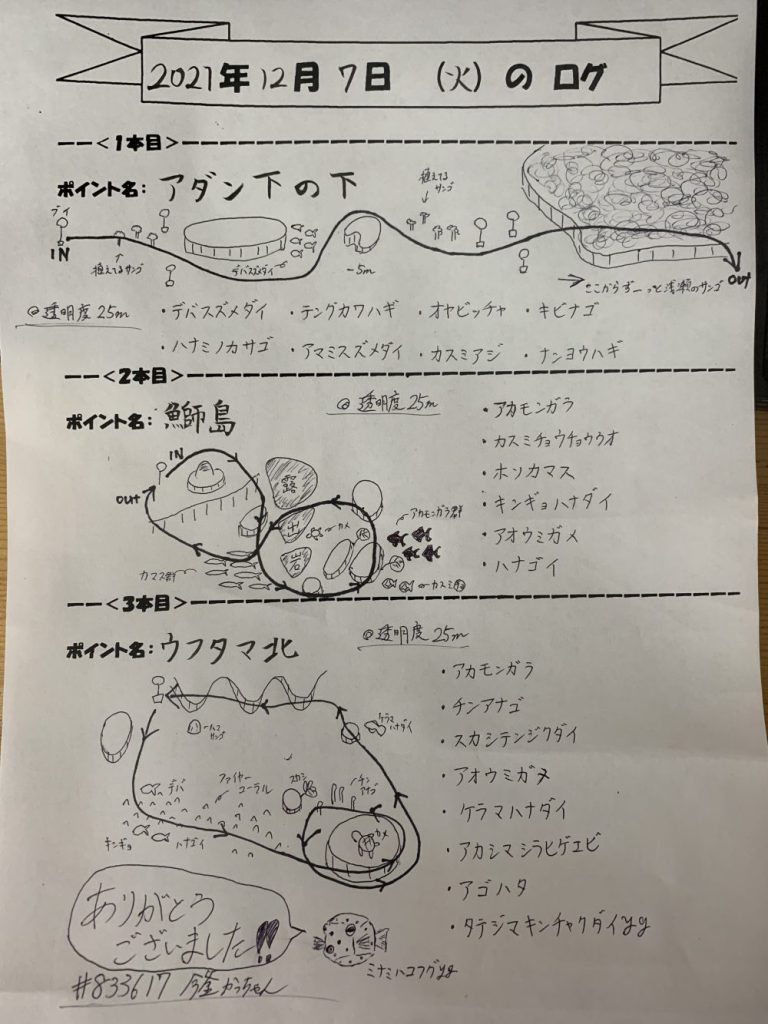 2021年12月7日 (火)のログ
<1本目>
ポイント名:アダン下の下
ブイ
IN
植えてるサンゴ
デバスズメダイ
-5m
植えてる
サンゴ
→ここからずーっと浅瀬のサンゴ
out
@透明度25m
・デバスズメダイ ・テングカワハギ ・オヤビッチャ ・キビナゴ
・ハナミノカサゴ ・アマミスズメダイ ・カスミアジ ・ナンヨウハギ
<2本目>
ポイント名:鰤島
@透明度25m
IN
out
露
出
岩
カメ
アカモンガラ群
カマス群
カスミ
・アカモンガラ
・カスミチョウチョウウオ
・ホソカマス
・キンギョハナダイ
・アオウミガメ
・ハナゴイ
<3本目>
ポイント名:ウフタマ北
@透明度25m
ハマ
サンゴ
ケラマ
ハナダイ
デバ
ファイヤー
コーラル
スカシ
チン
アナゴ
キンギョ
ハナゴイ
カメ
・アカモンガラ
・チンアナゴ
・スカシテンジクダイ
・アオウミガメ
・ケラマハナダイ
・アカシマシラヒゲエビ
・アゴハタ
・タテジマキンチャクダイyg
ありがとう
ございました!!
ミナミハコフグyg
#833617 かっちゃん